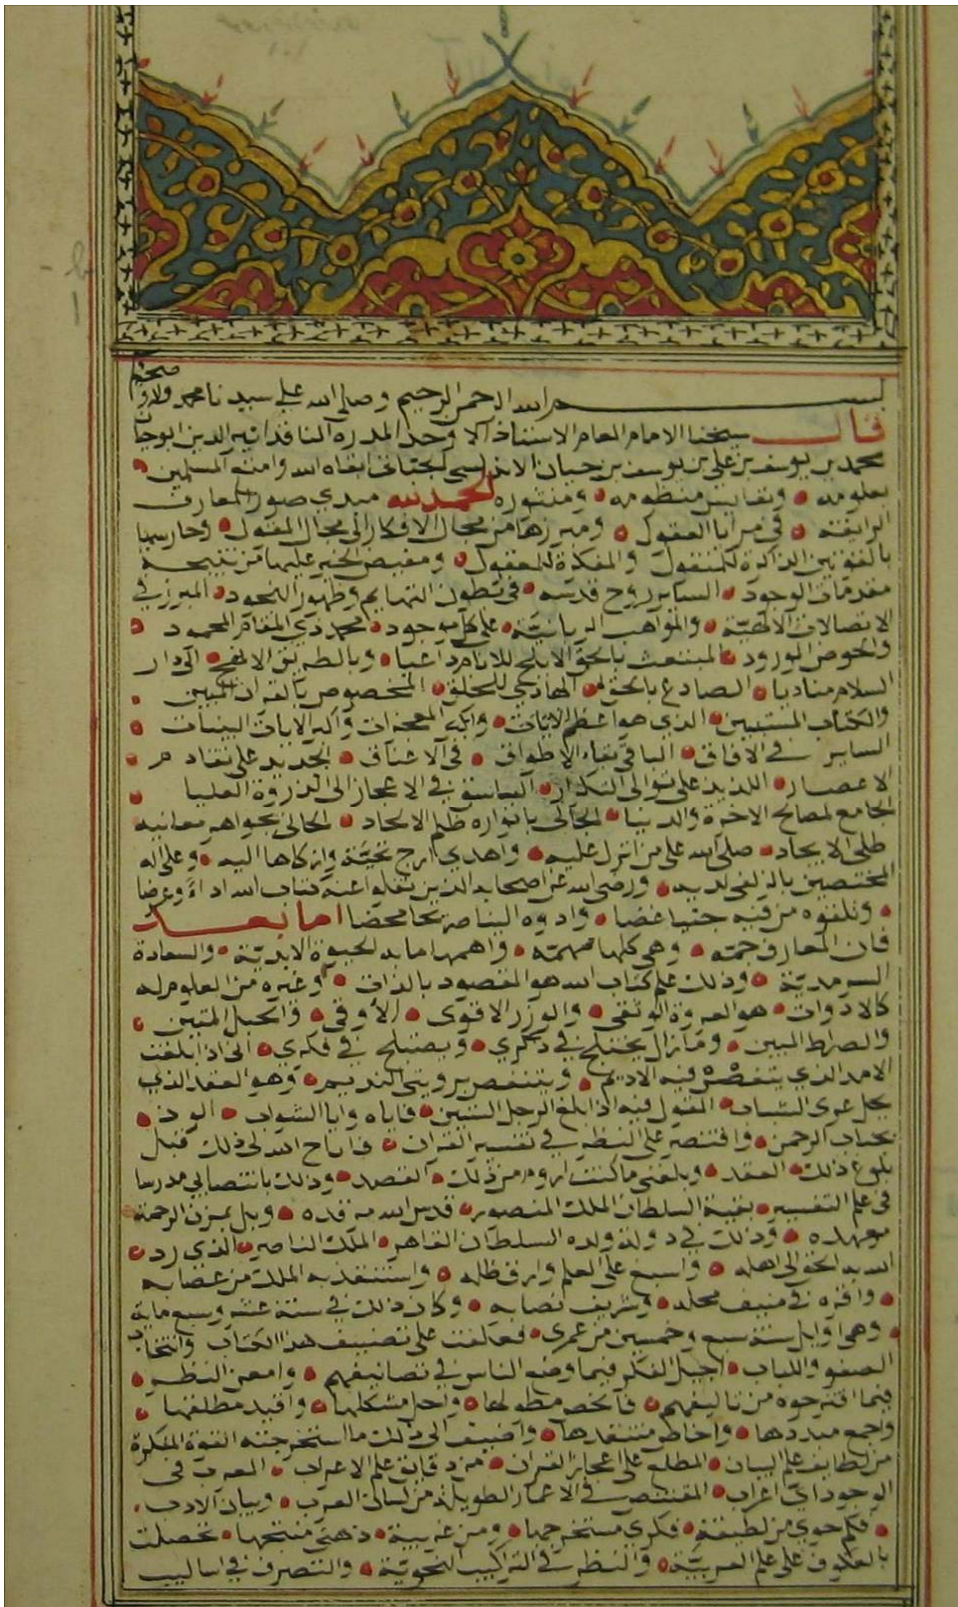 بسم الله الرحمن الرحيم وصلى الله على سيدنا محمد وآله وصحبه
قال شيخنا الامام العالم الاستاذ الاوحد المدره الناقد اثير الدين ابو حيان
محمد بن يوسف بن علي بن يوسف بن حيان الاندلسي الجياني ابقاه الله وامتع المسلمين
بعلومه ونفايس منظومه ومنثوره الحمد لله مبدي صور المعارف
الربانية في مرايا العقول ومبرزها من محال الافكار الى محال المقول وحارسها
بالقوتين الذاكرة للمنقول والمفكرة للمعقول ومفيض الخير عليها من نتيجة
مقدمات الوجود الساير روح قدسه في بطون التهايم وظهور النجود المبرز في
الاتصالات الالهية والمواهب الربانية على كل موجود محمد ذي المقام المحمود
والحوض المورود المبتعث بالحق الابلج للانام داعيا وبالطريق الانهج الى دار
السلام مناديا الصادع بالحق الهادي للخلق المخصوص بالقران المبين
والكتاب المستبين الذي هو اعظم الايات واكبر المعجزات وآكد الايات البينات
الساير في الافاق الباقي بقاء الاطواق في الاعناق الجديد على تقادم
الاعصار اللذيذ على توالي التكرار الباسق في الاعجاز الى الذروة العليا
الجامع لمصالح الاخرة والدنيا الجالي بانواره ظلم الالحاد الحالي بجواهر معانيه
طلى الاجياد صلى الله على من انزل عليه واهدي ارج تحية وازكاها اليه وعلى اله
المختصين بالزلفى لديه ورضي الله عن اصحابه الذين نقلوا عنه كتاب الله اداء وعرضا
وتلقوه من فيه جنيا غضا وادوه الينا صريحا محضا اما بعد
فان المعارف جمه وهي كلها مهمه واهمها ما به الحيوة الابدية والسعادة
السرمدية وذلك علم كتاب الله هو المقصود بالذات وغيره من العلوم له
كالادوات هو العروة الوثقى والوزر الاقوى الأوقى والحبل المتين
والصراط المبين وما زال يختلج في ذكري ويعتلج في فكري اني اذا بلغت
الامد الذي يتغضن فيه الاديم ويتنغص برؤيتي النديم وهو العقد الذي
يحل عرى الشباب المقول فيه اذا بلغ الرجل الستين فاياه وايا الشواب الوذ
بجناب الرحمن واقتصر على النظر في تفسير القران فاتاح الله لي ذلك قبل
بلوغ ذلك العقد وبلغني ما كنت اروم من ذلك القصد وذلك بانتصابي مدرسا
في علم التفسير بقبة السلطان الملك المنصور قدس الله مرقده وبل بمزن الرحمة
معهده وذلك في دولة ولده السلطان القاهر الملك الناصر الذي رد
الله به الحق الى اهله واسبغ على العلم وارف ظله واستنقذ به الملك من غصابه
واقره في منيف محله وشريف نصابه وكان ذلك في سنة عشر وسبع ماية
وهي اوايل سنة سبع وخمسين من عمري فعكفت على تصنيف هذا الكتاب وانتخاب
الصفو واللباب اجيل الفكر فيما وضع الناس في تصانيفهم وامعن النظر
فيما اقترحوه من تاليفهم فالخص مطولها واحل مشكلها واقيد مطلقها
واجمع مبددها واخلص منتقدها واضيف الى ذلك ما استخرجته القوة المفكرة
من لطايف علم البيان المطلع على اعجاز القران من دقايق علم الاعراب المغرب في
الوجود اي اغراب المقتنص في الاعمار الطويلة من لسان العرب وبيان الادب
فكم حوى من لطيفة فكري مستخرجها ومن غريبة ذهني منتجها تحصلت
بالعكوف على علم العربية والنظر في التراكيب النحوية والتصرف في اساليب